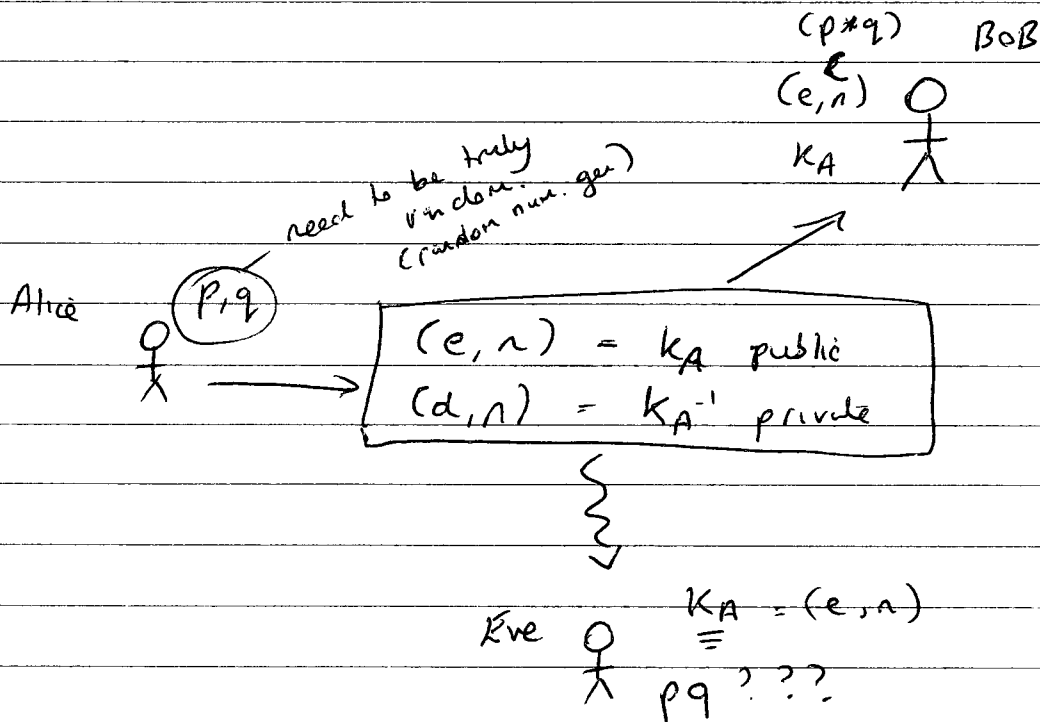 (p*q) BOB
(e,n)
KA
need to be truly
random.
(random num. gen)
Alice p,q
(e,n) = KA public
(d,n) = KA⁻¹ private
Eve KA = (e,n)
pq ???